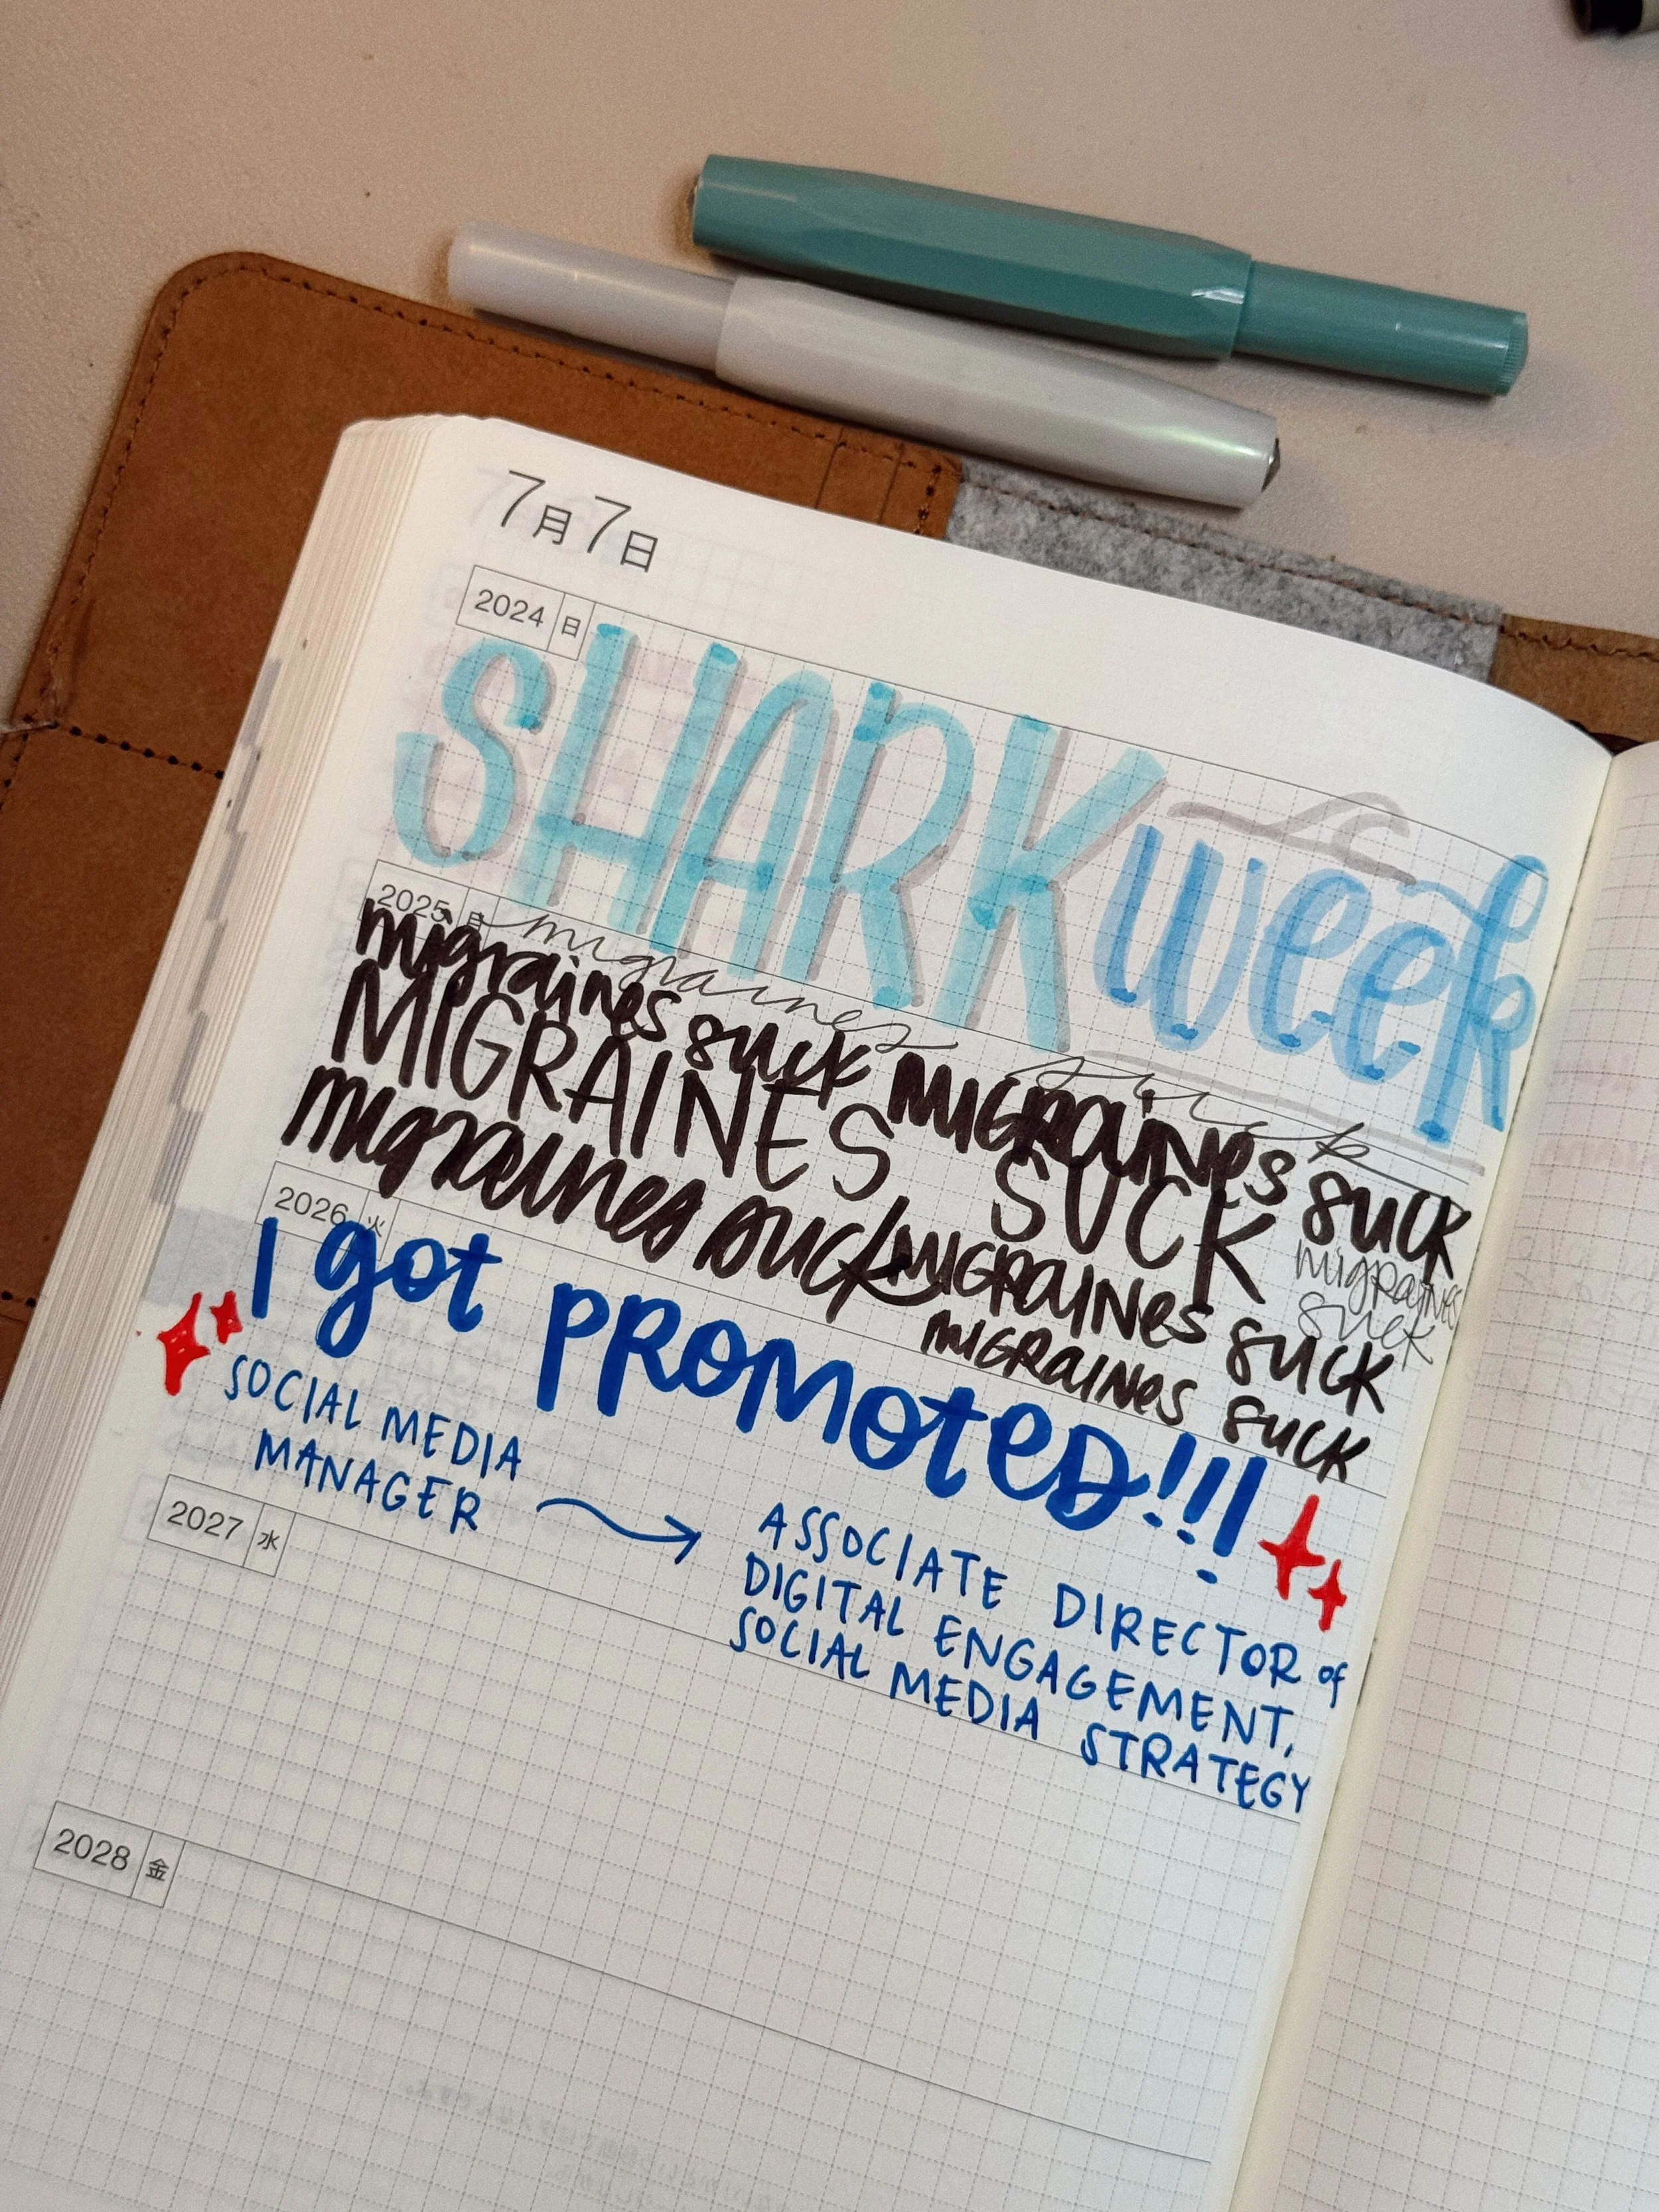 7月7日
2024 日
SHARK week
2025 月 migraines suck
migraines suck MIGRAINES suck
MIGRAINES SUCK
migraines suck
migraines suck MIGRAINES suck
MIGRAINES suck
2026 火
I got PROMOTED!!!
SOCIAL MEDIA
MANAGER
ASSOCIATE DIRECTOR of
DIGITAL ENGAGEMENT,
SOCIAL MEDIA STRATEGY
2027 水
2028 金